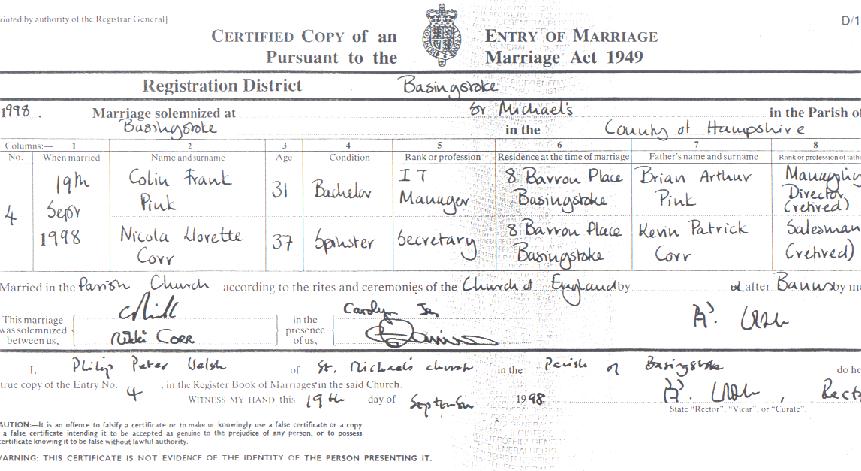 rinted by authority of the Registrar General]
D/1
CERTIFIED COPY of an ENTRY OF MARRIAGE
Pursuant to the Marriage Act 1949
Registration District Basingstoke
1998. Marriage solemnized at St Michael's in the Parish of
Basingstoke in the County of Hampshire
Columns:— 1 2 3 4 5 6 7 8
No. When married Name and surname Age Condition Rank or profession Residence at the time of marriage Father's name and surname Rank or profession of fath
4 19th Sept 1998 Colin Frank Pink 31 Bachelor IT Manager 8 Barron Place Basingstoke Brian Arthur Pink Managing Director (retired)
Nicola Llorette Corr 37 Spinster Secretary 8 Barron Place Basingstoke Kevin Patrick Corr Salesman (retired)
Married in the Parish Church according to the rites and ceremonies of the Church of England by after Banns by m
This marriage was solemnized between us, Nikki Corr in the presence of us, Carolyn
I, Philip Peter Welsh of St. Michael's church in the Parish of Basingstoke do he
true copy of the Entry No. 4, in the Register Book of Marriages in the said Church.
WITNESS MY HAND this 19th day of September 1998 Rect
State "Rector", "Vicar", or "Curate".
AUTION:—It is an offence to falsify a certificate or to make or knowingly use a false certificate or a copy
a false certificate intending it to be accepted as genuine to the prejudice of any person, or to possess
certificate knowing it to be false without lawful authority.
WARNING: THIS CERTIFICATE IS NOT EVIDENCE OF THE IDENTITY OF THE PERSON PRESENTING IT.